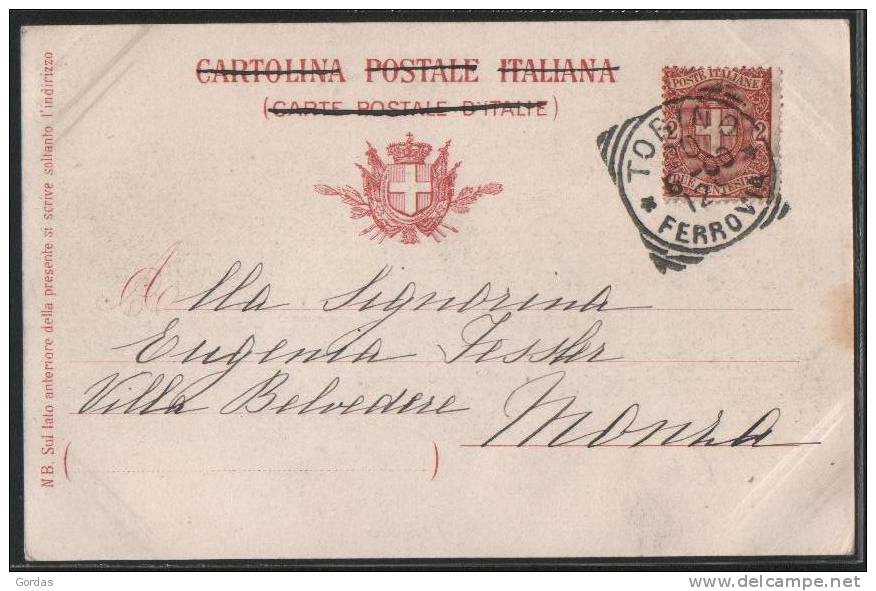 CARTOLINA POSTALE ITALIANA
(CARTE POSTALE D'ITALIE)
POSTE ITALIANE
2 2
DUE CENTESIMI
TORINO
12
* FERROVIA *
N.B. Sul lato anteriore della presente si scrive soltanto l'indirizzo
Alla Signorina
Eugenia Fessler
Villa Belvedere
Monza
( )
Gordas
www.delcampe.net